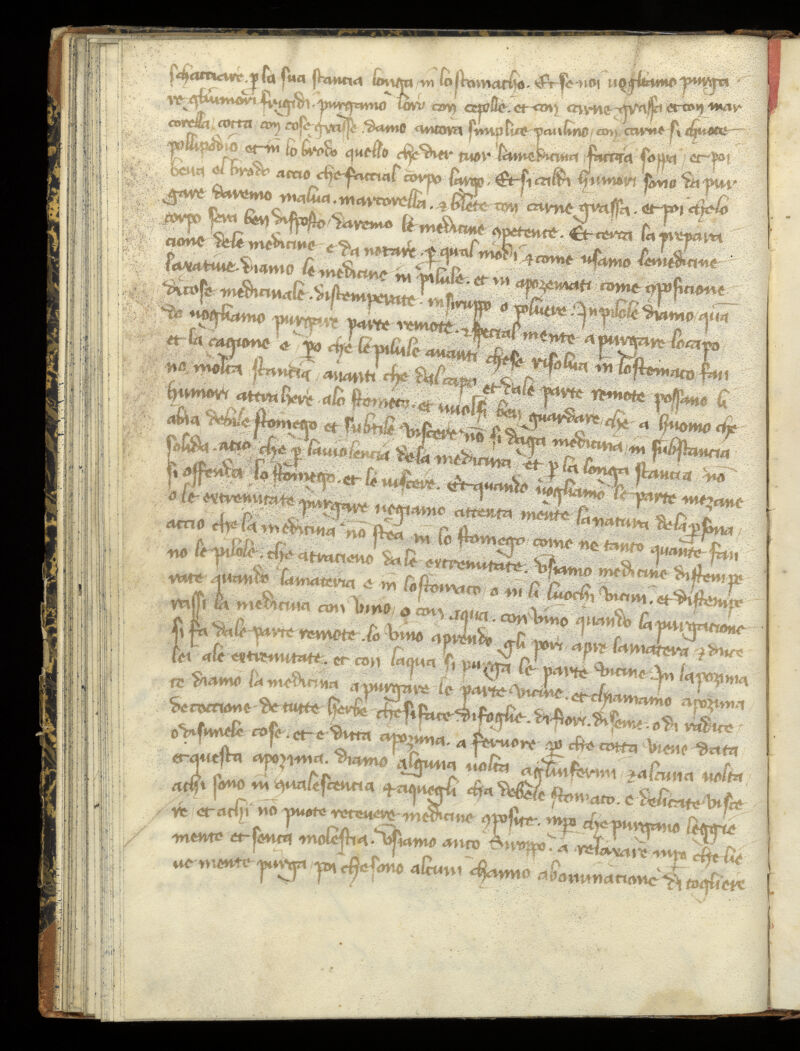 schacciare. p la sua stantia longa in lo stomacho. Et se noi uogliamo purga
re gliumori frigidi. purgamo loro con cepolle. et con carne grassa et con mar
corella, cotta con cose grasse. damo ancora simplice paulino, con carne si chuoce
pollipodio et in lo brodo quello che dier tuor lamedicina faccia soppa, et poi
beua el brodo accio che faccial corpo largo. Et si caldi humori sono da pur
gare daremo malua. marcorella. & blete con carne grassa. et poi chelo
corpo sera ben disposto, daremo le medicine 9petente. Et cerca la prepara
cione dele medicine e da notare. p qual modi & come usamo lemedicine
laxatiue. diamo le medicine in pilule. et in apozemati come 9posicione
dicose medicinale. distemperate. in siruppo o poluere. In pilole diamo, quā
do uogliamo purgare parte remote. & specialmente a purgare locapo
et la cagione e, po che le pilule auanti chese risolua in lo stomaco fan
no molta stantia, auanti che dal capo et dale parte remote possano li
humori attrahere alo stomeco. et uuolsi ben guardare che a huomo che
abia debile stomego et subtile viscere nō si daga medicina in substancia
solida. acio che p lauiolencia dela medicina et p la longa stancia nō
si offenda lo stomego. et le viscere. Et quando uogliamo le parte mezane
o le extremitate purgare uegiamo attenta mente la natura dela psona,
accio che la medicina nō stea in lo stomego, come ne tanto quante fan
no le pilole. che atracieno da le extremitate. Vsiamo medicine distempe
rate quando lamateria e in lo stomaco, o in li luochi vicini. et distempe
rassi la medicina con vino, o con aqua. con vino quando la purgacione
si fa dale parte remote. lo vino aprendo gli pori apre lamatera & duce
lei ale extremitate. et con laqua si purga le parte vicine. In lapozima
te diamo la medicina a purgare le parte vicine. et chiamamo apozima
decoccione de tutte herbe che si face di foglie. di fiori. di seme. o di radice
o disimele cose. et e ditta apozima. a feruore po che cotta viene data
et questa apozima. diamo alguna uolta aglinfermi, & alcuna uolta
achi sono in qualescencia, & aquegli cha debele stomaco. e delicate visce
re, et achi nō puote receuere medicine 9posite. inpo che purgano leggie
mente et senca molestia. Vsiamo anco Siroppo. a relaxare inpo che lie
ue mente purga, poi che sono alcuni channo abominacione di togliere